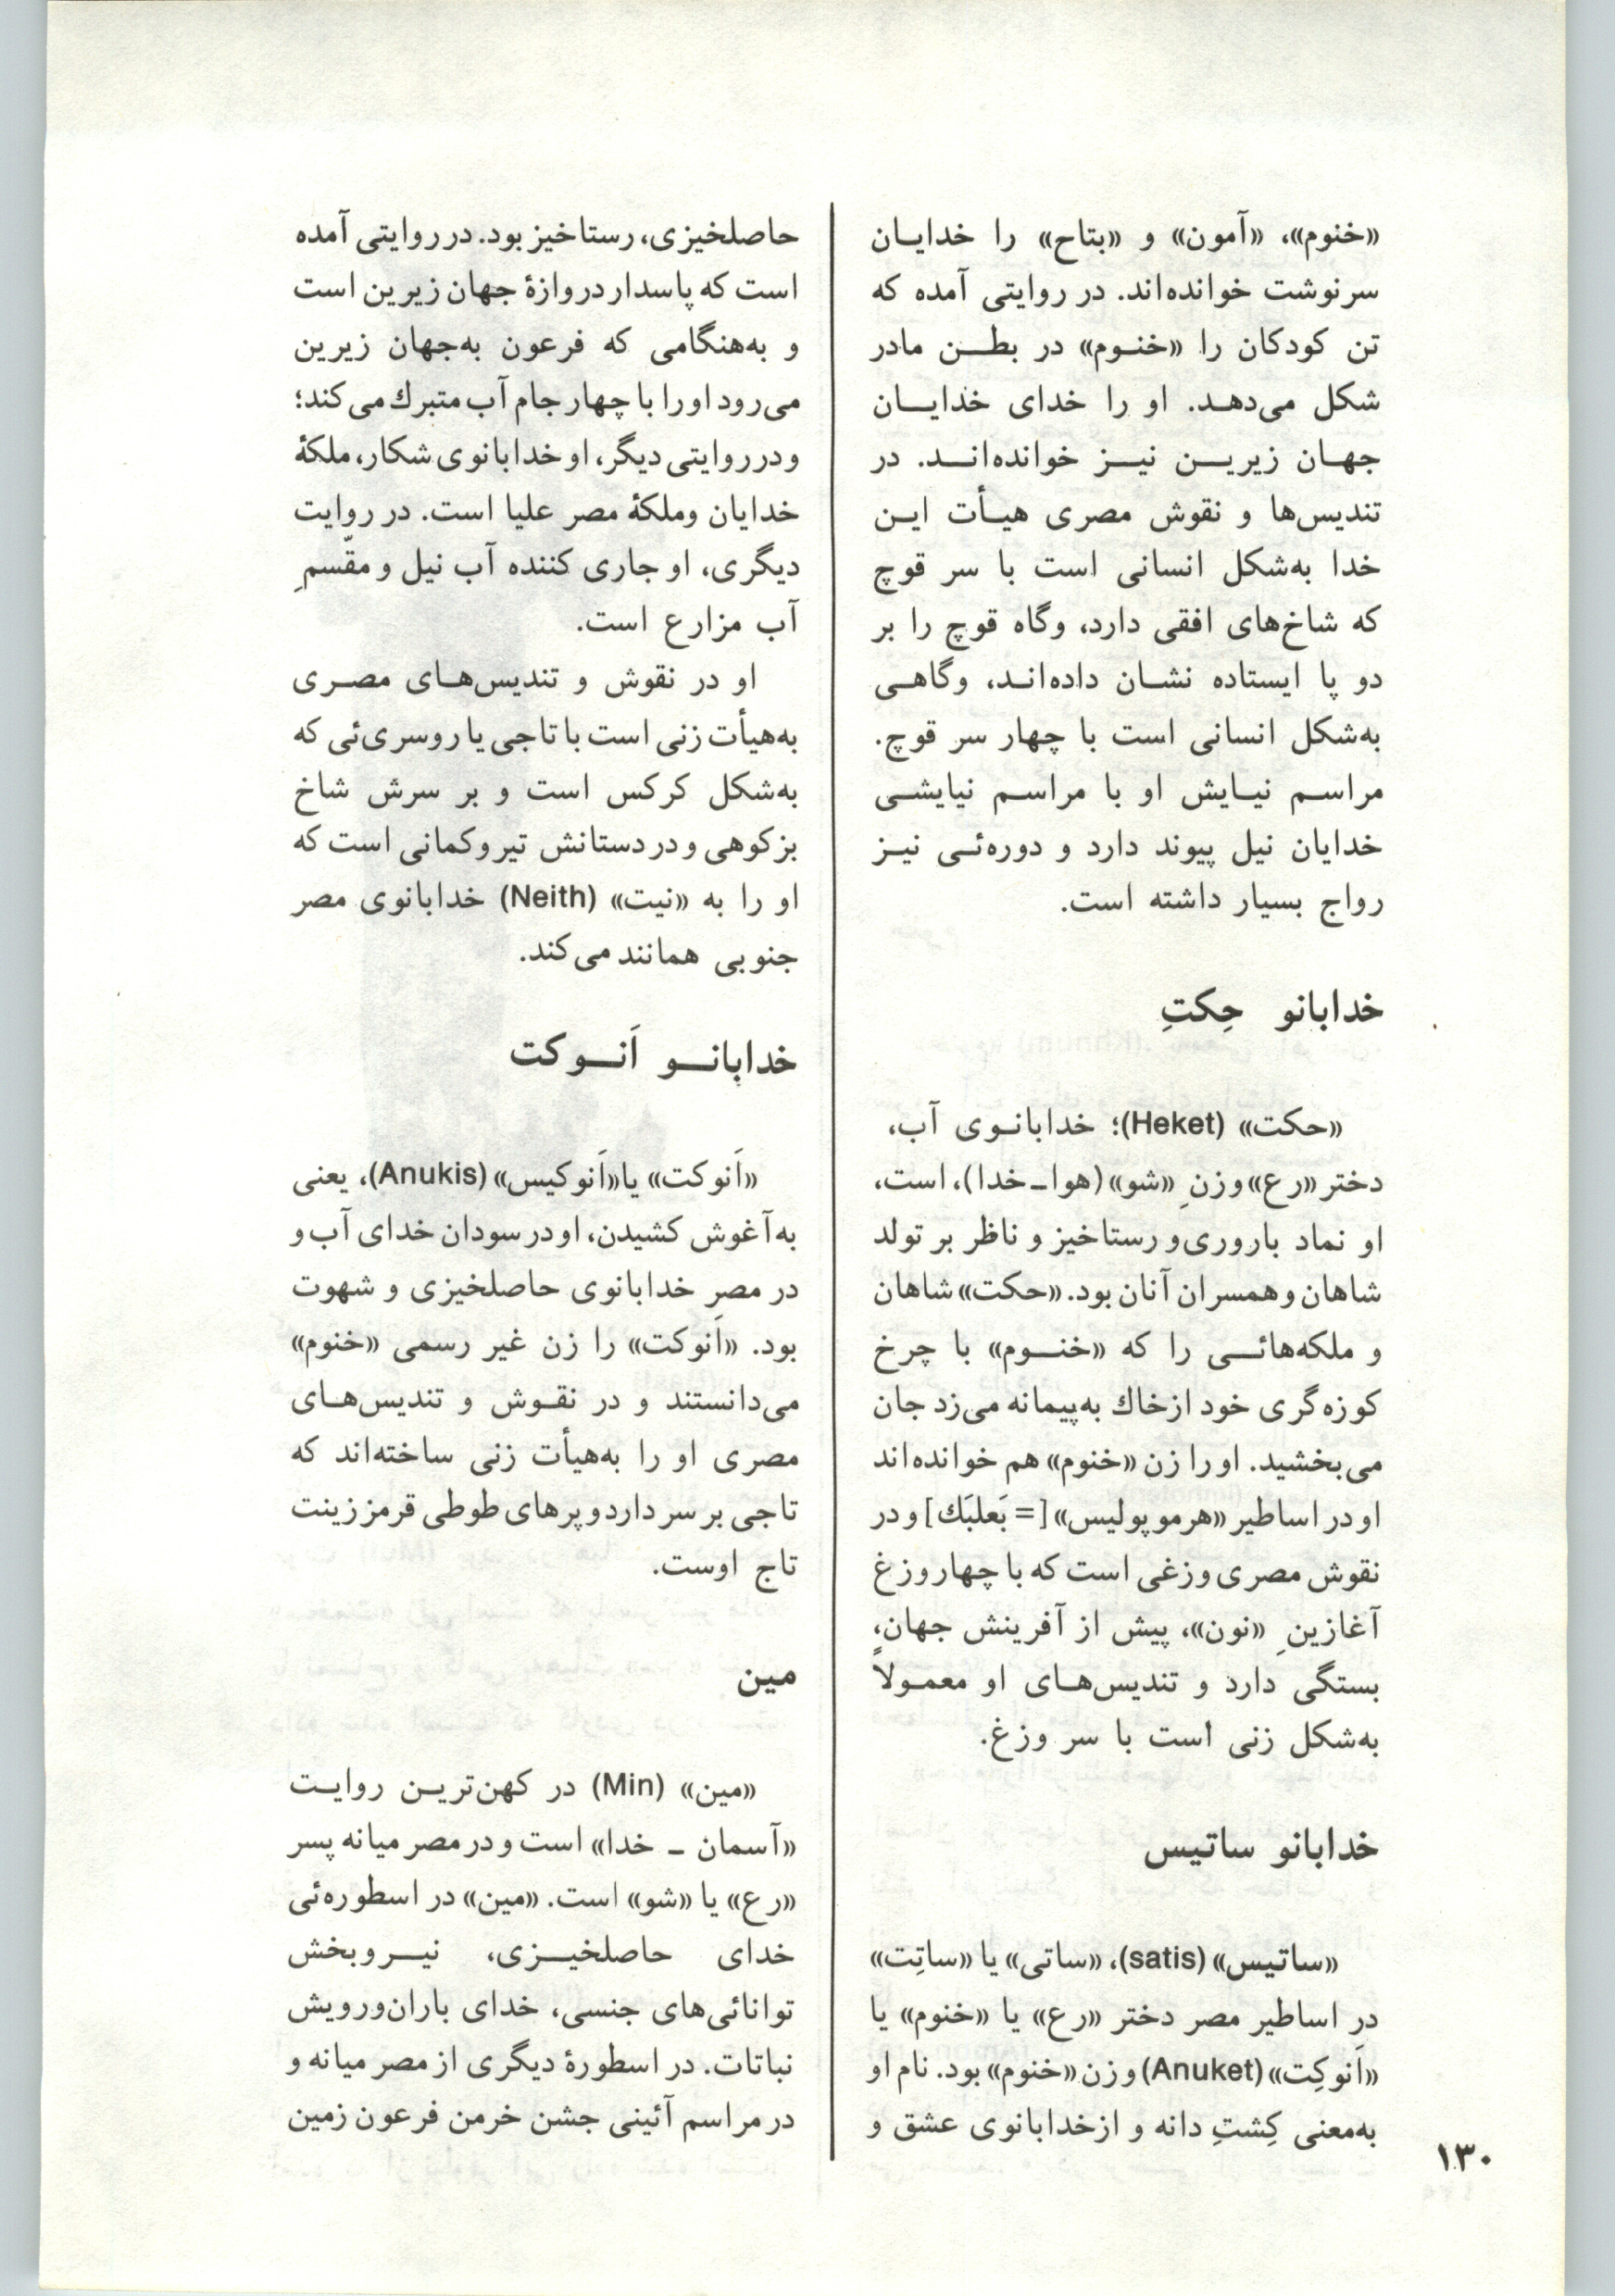 «خنوم»، «آمون» و «بتاح» را خدایان
سرنوشت خوانده‌اند. در روایتی آمده که
تن کودکان را «خنوم» در بطن مادر
شکل می‌دهد. او را خدای خدایان
جهان زیرین نیز خوانده‌اند. در
تندیس‌ها و نقوش مصری هیأت این
خدا به‌شکل انسانی است با سر قوچ
که شاخ‌های افقی دارد، وگاه قوچ را بر
دو پا ایستاده نشان داده‌اند، وگاهی
به‌شکل انسانی است با چهار سر قوچ.
مراسم نیایش او با مراسم نیایشی
خدایان نیل پیوند دارد و دوره‌ئی نیز
رواج بسیار داشته است.
خدابانو حِکتِ
«حکت» (Heket)؛ خدابانوی آب،
دختر «رع» وزنِ «شو» (هوا ـ خدا)، است،
او نماد باروری و رستاخیز و ناظر بر تولد
شاهان وهمسران آنان بود. «حکت» شاهان
و ملکه‌هائی را که «خنوم» با چرخ
کوزه‌گری خود ازخاك به‌پیمانه می‌زد جان
می‌بخشید. او را زن «خنوم» هم خوانده‌اند
او در اساطیر «هرموپولیس» [= بَعلبَك] و در
نقوش مصری وزغی است که با چهار وزغ
آغازینِ «نون»، پیش از آفرینش جهان،
بستگی دارد و تندیس‌های او معمولاً
به‌شکل زنی است با سر وزغ.
خدابانو ساتیس
«ساتیس» (satis)، «ساتی» یا «ساتِت»
در اساطیر مصر دختر «رع» یا «خنوم» یا
«اَنوکِت» (Anuket) و زن «خنوم» بود. نام او
به‌معنی کِشتِ دانه و ازخدابانوی عشق و
حاصلخیزی، رستاخیز بود. در روایتی آمده
است که پاسدار دروازهٔ جهان زیرین است
و به‌هنگامی که فرعون به‌جهان زیرین
می‌رود او را با چهار جام آب متبرك می‌کند؛
و در روایتی دیگر، او خدابانوی شکار، ملکهٔ
خدایان وملکهٔ مصر علیا است. در روایت
دیگری، او جاری کننده آب نیل و مقّسمِ
آب مزارع است.
او در نقوش و تندیس‌های مصری
به‌هیأت زنی است با تاجی یا روسری‌ئی که
به‌شکل کرکس است و بر سرش شاخ
بزکوهی و در دستانش تیر وکمانی است که
او را به «نیت» (Neith) خدابانوی مصر
جنوبی همانند می‌کند.
خدابانو اَنوکت
«اَنوکت» یا «اَنوکیس» (Anukis)، یعنی
به‌آغوش کشیدن، او در سودان خدای آب و
در مصرِ خدابانوی حاصلخیزی و شهوت
بود. «اَنوکت» را زن غیر رسمی «خنوم»
می‌دانستند و در نقوش و تندیس‌های
مصری او را به‌هیأت زنی ساخته‌اند که
تاجی بر سر دارد وپرهای طوطی قرمز زینت
تاج اوست.
مین
«مین» (Min) در کهن‌ترین روایت
«آسمان ـ خدا» است و در مصر میانه پسر
«رع» یا «شو» است. «مین» در اسطوره‌ئی
خدای حاصلخیزی، نیروبخش
توانائی‌های جنسی، خدای باران‌ورویش
نباتات. در اسطورهٔ دیگری از مصر میانه و
در مراسم آئینی جشن خرمن فرعون زمین
۱۳۰